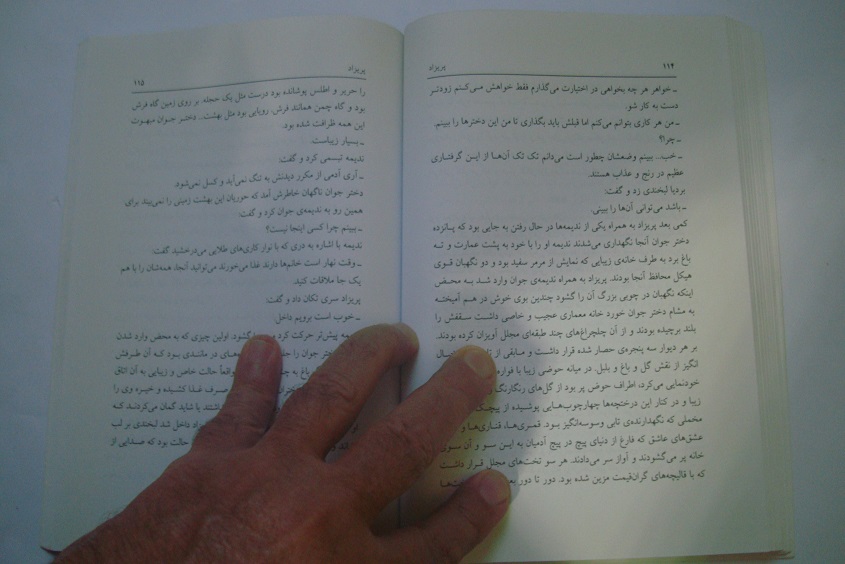 ۱۱۴ پریزاد
ـ خواهر هر چه بخواهی در اختیارت می‌گذارم فقط خواهش می‌کنم زودتر
دست به کار شو.
ـ من هر کاری بتوانم می‌کنم اما قبلش باید بگذاری تا من این دخترها را ببینم.
ـ چرا؟
ـ خب.. ببینم وضعشان چطور است می‌دانم تک تک آن‌ها از این گرفتاری
عظیم در رنج و عذاب هستند.
بردیا لبخندی زد و گفت:
ـ باشد می‌توانی آن‌ها را ببینی.
کمی بعد پریزاد به همراه یکی از ندیمه‌ها در حال رفتن به جایی بود که پانزده
دختر جوان آنجا نگهداری می‌شدند ندیمه او را با خود به پشت عمارت و ته
باغ برد به طرف خانه‌ی زیبایی که نمایش از مرمر سفید بود و دو نگهبان قوی
هیکل محافظ آنجا بودند. پریزاد به همراه ندیمه‌ی جوان وارد شد به محض
اینکه نگهبان در چوبی بزرگ آن را گشود چندین بوی خوش در هم آمیخته
به مشام دختر جوان خورد خانه معماری عجیب و خاصی داشت سقفش را
بلند برچیده بودند و از آن چلچراغ‌های چند طبقه‌ای مجلل آویزان کرده بودند.
بر هر دیوار سه پنجره‌ی حصار شده قرار داشت و مابقی از
انگیز از نقش گل و باغ و بلبل. در میانه حوضی زیبا با فواره
خودنمایی می‌کرد، اطراف حوض پر بود از گل‌های رنگارنگ
زیبا و در کنار این درختچه‌ها چهارچوب‌هایی پوشیده از پیچک
مخملی که نگهدارنده‌ی تابی وسوسه‌انگیز بود. قمری‌ها، قناری‌ها و
عشق‌های عاشق که فارغ از دنیای پیچ در پیچ آدمیان به این سو و آن سوی
خانه پر می‌گشودند و آواز سر می‌دادند. هر سو تخت‌های مجلل قرار داشت
که با قالیچه‌های گران‌قیمت مزین شده بود. دور تا دور
پریزاد ۱۱۵
را حریر و اطلس پوشانده بود درست مثل یک حجله. بر روی زمین گاه فرش
بود و گاه چمن همانند فرش. رویایی بود مثل بهشت.. دختر جوان مبهوت
این همه ظرافت شده بود.
ـ بسیار زیباست.
ندیمه تبسمی کرد و گفت:
ـ آری آدمی از مکرر دیدنش به تنگ نمی‌آید و کسل نمی‌شود.
دختر جوان ناگهان خاطرش آمد که حوریان این بهشت زمینی را نمی‌بیند برای
همین رو به ندیمه‌ی جوان کرد و گفت:
ـ ببینم چرا کسی اینجا نیست؟
ندیمه با اشاره به دری که با نوار کاری‌های طلایی می‌درخشید گفت:
ـ وقت نهار است خانم‌ها دارند غذا می‌خورند می‌توانید آنجا، همه‌شان را با هم
یک جا ملاقات کنید.
پریزاد سری تکان داد و گفت:
ـ خوب است برویم داخل.
پیش‌تر حرکت کرد و گشود. اولین چیزی که به محض وارد شدن
جوان را در ماندی بود که آن طرفش
باغ به واقعاً حالت خاص و زیبایی به آن اتاق
صرف غذا کشیده و خیره وی را
داشتند. با شاید گمان می‌کردند که
داخل شد لبخندی بر لب
حالت بود که صدایی از